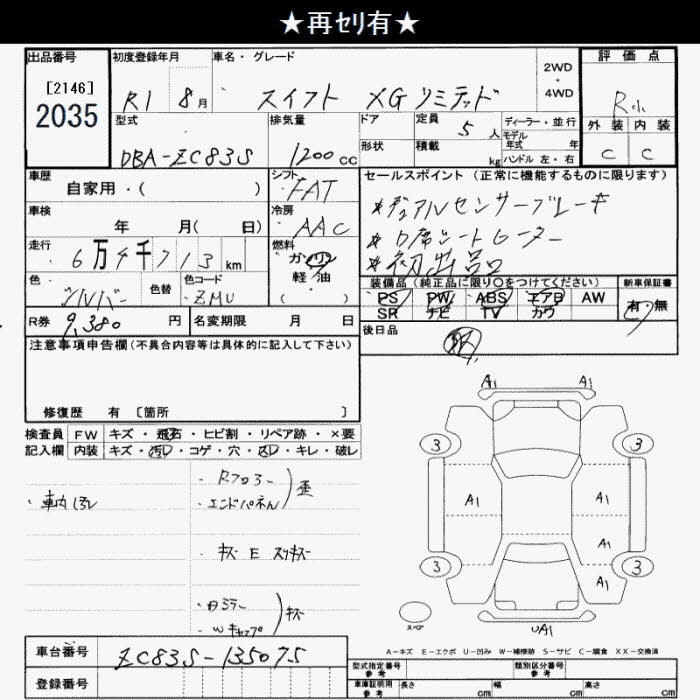 ★再ｾﾘ有★
出品番号 初度登録年月 車名・グレード 2WD・4WD 評価点
[2146]
2035
R1 8月 スイフト XGリミテッド R小
型式 排気量 ドア 定員 5人 ディーラー・並行 外装 内装
モデル年式 年
DBA-ZC83S 1200cc 形状 積載 kg ハンドル 左・右 C C
車歴 シフト セールスポイント（正常に機能するものに限ります）
自家用・( ) FAT *デュアルセンサーブレーキ
車検 冷房
年 月( 日) AAC *D席シートヒーター
走行 燃料 *初出品
6万4千713km ガソリン
軽・油
( )
色 色替 色コード 装備品（純正品に限り○をつけてください） 新車保証書
シルバー ZMU PS PW ABS エアB AW 有・無
SR ナビ TV カワ
R券 9,380円 名変期限 月 日 後日品
注意事項申告欄(不具合内容等は具体的に記入して下さい)
修復歴 有 〔箇所 〕
検査員 FW キズ・飛石・ヒビ割・リペア跡・×要
記入欄 内装 キズ・汚レ・コゲ・穴・スレ・キレ・破レ
A1 A1
3 3
・車内汚レ
・Rフロアー
・エンドパネル 歪
A1 A1
・キズ E スリキズ
A1
3 3
A1
・Wキャップ キズ
スペア UA1
A－キズ E－エクボ U－凹み W－補修跡 S－サビ C－腐食 XX－交換済
車台番号 ZC83S-135075
型式指定番号 参考 類別区分番号 参考
登録番号
車庫証明用 参考 長さ cm 幅 cm 高さ cm